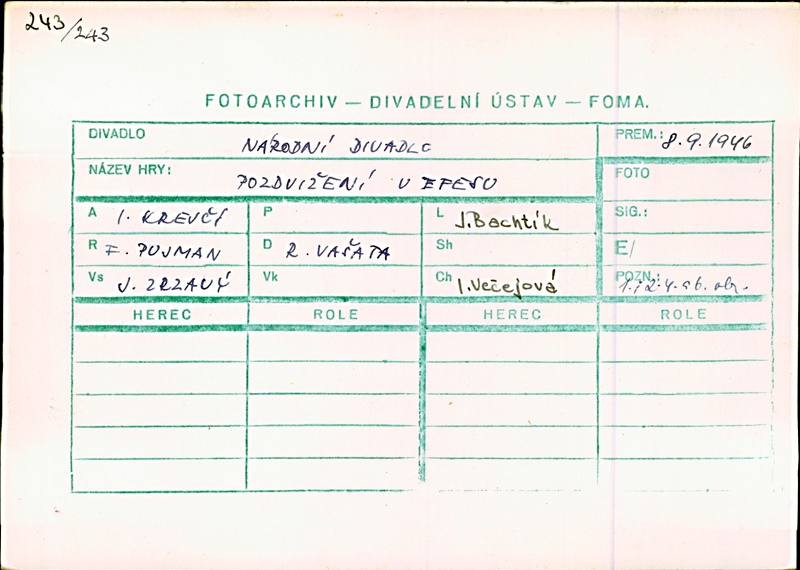 243/243
FOTOARCHIV — DIVADELNÍ ÚSTAV — FOMA.
DIVADLO NÁRODNÍ DIVADLO PREM.: 8.9.1946
NÁZEV HRY: POZDVIŽENÍ V EFESU FOTO
A I. KREJČÍ P L J. Bachtík SIG.:
R F. PUJMAN D R. VAŠATA Sh E/
Vs J. ZRZAVÝ Vk Ch I. Večejová POZN.: obr.
HEREC ROLE HEREC ROLE